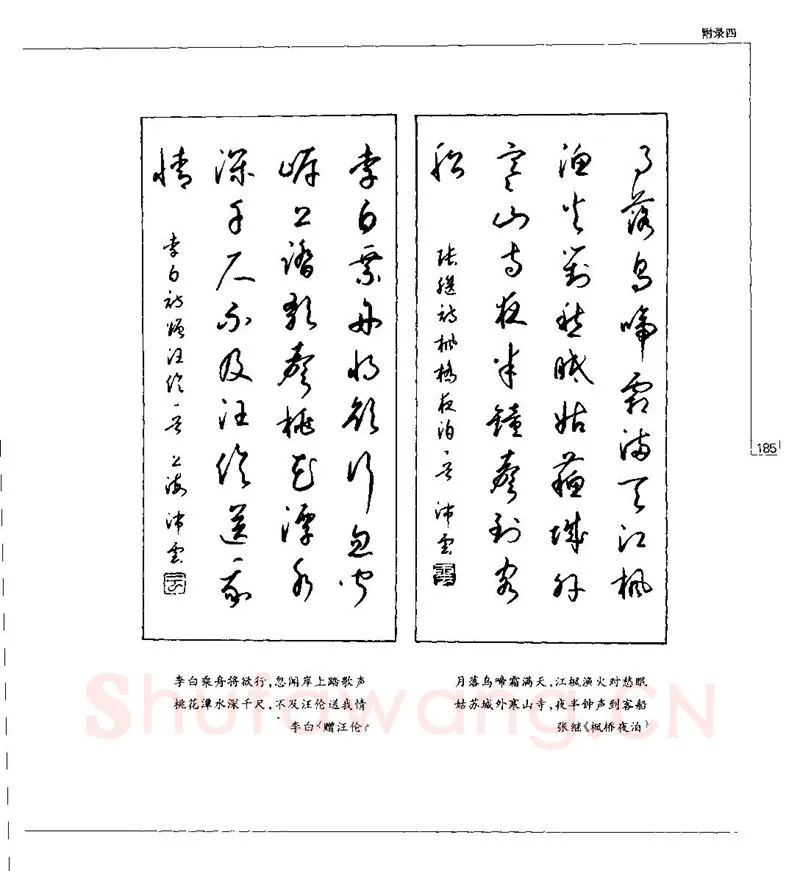 附录四
月落烏啼霜满天江楓
渔火對愁眠姑蘇城外
寒山寺夜半鐘聲到客
船
張繼詩楓橋夜泊一首 沛雲
李白乘舟將欲行忽聞
岸上踏歌聲桃花潭水
深千尺不及汪倫送我
情
李白詩贈汪倫一首 上海沛雲
185
李白乘舟将欲行,忽闻岸上踏歌声
桃花潭水深千尺,不及汪伦送我情
李白《赠汪伦》
月落乌啼霜满天,江枫渔火对愁眠
姑苏城外寒山寺,夜半钟声到客船
张继《枫桥夜泊》
Shufawang.CN